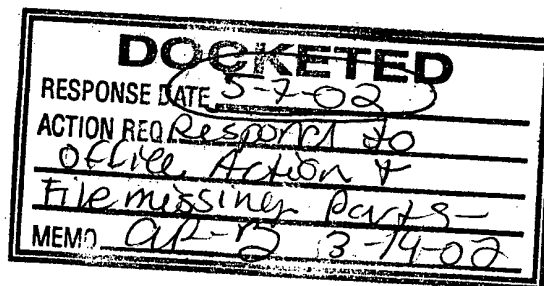 DOCKETED
RESPONSE DATE 5-7-02
ACTION REQ Respond to
Office Action +
File missing Parts-
MEMO 3-14-02